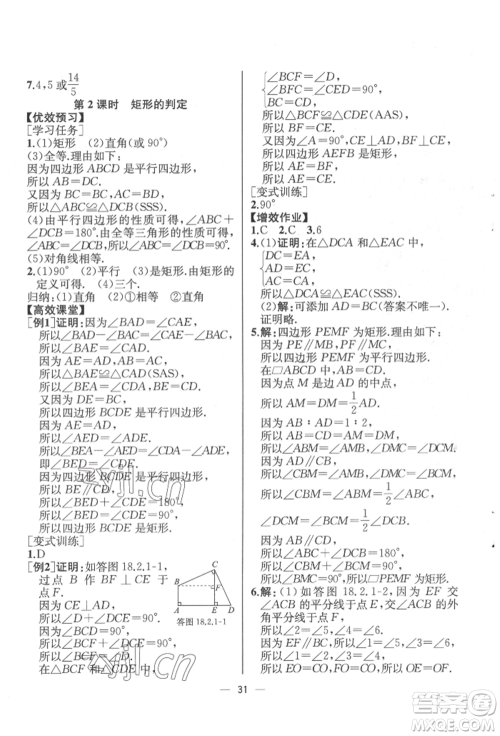 7.4,5或14/5
第2课时 矩形的判定
【优效预习】
[学习任务]
1.(1)矩形 (2)直角(或90°)
(3)全等.理由如下:
因为四边形ABCD是平行四边形,
所以AB=DC.
又因为BC=BC,AC=DB,
所以△ABC≌△DCB(SSS).
(4)由平行四边形的性质可得,∠ABC+∠DCB=180°.由全等三角形的性质可得,∠ABC=∠DCB=90°.
(5)对角线相等.
2.(1)90° (2)平行 (3)矩形.由矩形的定义可得. (4)三个.
归纳:(1)直角 (2)相等 (3)直角
【高效课堂】
[例1]证明:因为∠BAD=∠CAE,
所以∠BAE=∠CAD.
因为AE=AD,AB=AC,
所以△BAE≌△CAD(SAS).
所以∠BEA=∠CDA,BE=CD.
又因为DE=BC,
所以四边形BCDE是平行四边形.
因为AE=AD,
所以∠AED=∠ADE.
所以∠BED=∠CDE.
因为四边形BCDE是平行四边形,
所以BE∥CD.
所以∠BED+∠CDE=180°,
所以∠BED=∠CDE=90°.
所以四边形BCDE是矩形.
[变式训练]
1.D
[例2]证明:如答图18.2.1-1,
过点B作BF⊥CE于
点F.
因为CE⊥AD,
所以∠D+∠DCE=90°.
因为∠BCD=90°,
所以∠BCF+∠DCE=90°.
所以∠BCF=∠D.
在△BCF和△CDE中,
答图18.2.1-1
∠BCF=∠D,
∠BFC=∠CED=90°,
BC=CD,
所以△BCF≌△CDE(AAS).
所以BF=CE.
又因为∠A=90°,CE⊥AD,BF⊥CE,
所以四边形AEFB是矩形.
所以AE=BF.所以AE=CE.
[变式训练]
2.90°
【增效作业】
1.C 2.C 3.6
4.(1)证明:在△DCA和△EAC中,
DC=EA,
AD=CE,
AC=CA,
所以△DCA≌△EAC(SSS).
(2)解:可添加AD=BC(答案不唯一).
证明略.
5.解:四边形PEMF为矩形.理由如下:
因为PE∥MB,PF∥MC,
所以四边形PEMF为平行四边形.
在□ABCD中,AD∥BC,AB=DC,
因为点M是边AD的中点,
所以AM=DM=1/2AD.
因为AB:AD=1:2,
所以AB=AM=DM=DC.
所以∠ABM=∠AMB,∠DMC=∠DCM.
因为AD∥BC,
所以∠AMB=∠CBM,∠DMC=∠BCM.
所以∠ABM=∠CBM=1/2∠ABC,
∠DCM=∠BCM=1/2∠BCD.
因为AB∥CD,
所以∠ABC+∠BCD=180°.
所以∠CBM+∠BCM=90°.
所以∠BMC=90°.
所以□PEMF为矩形.
6.解:(1)证明:因为EF交∠ACB的平分线于点E,交∠ACB的外角平分线于点F,
所以∠2=∠5,∠4=∠6.
因为EF∥BC,
所以∠1=∠5,∠3=∠6.
所以∠1=∠2,∠3=∠4.
所以EO=CO,FO=CO.所以OE=OF.
31